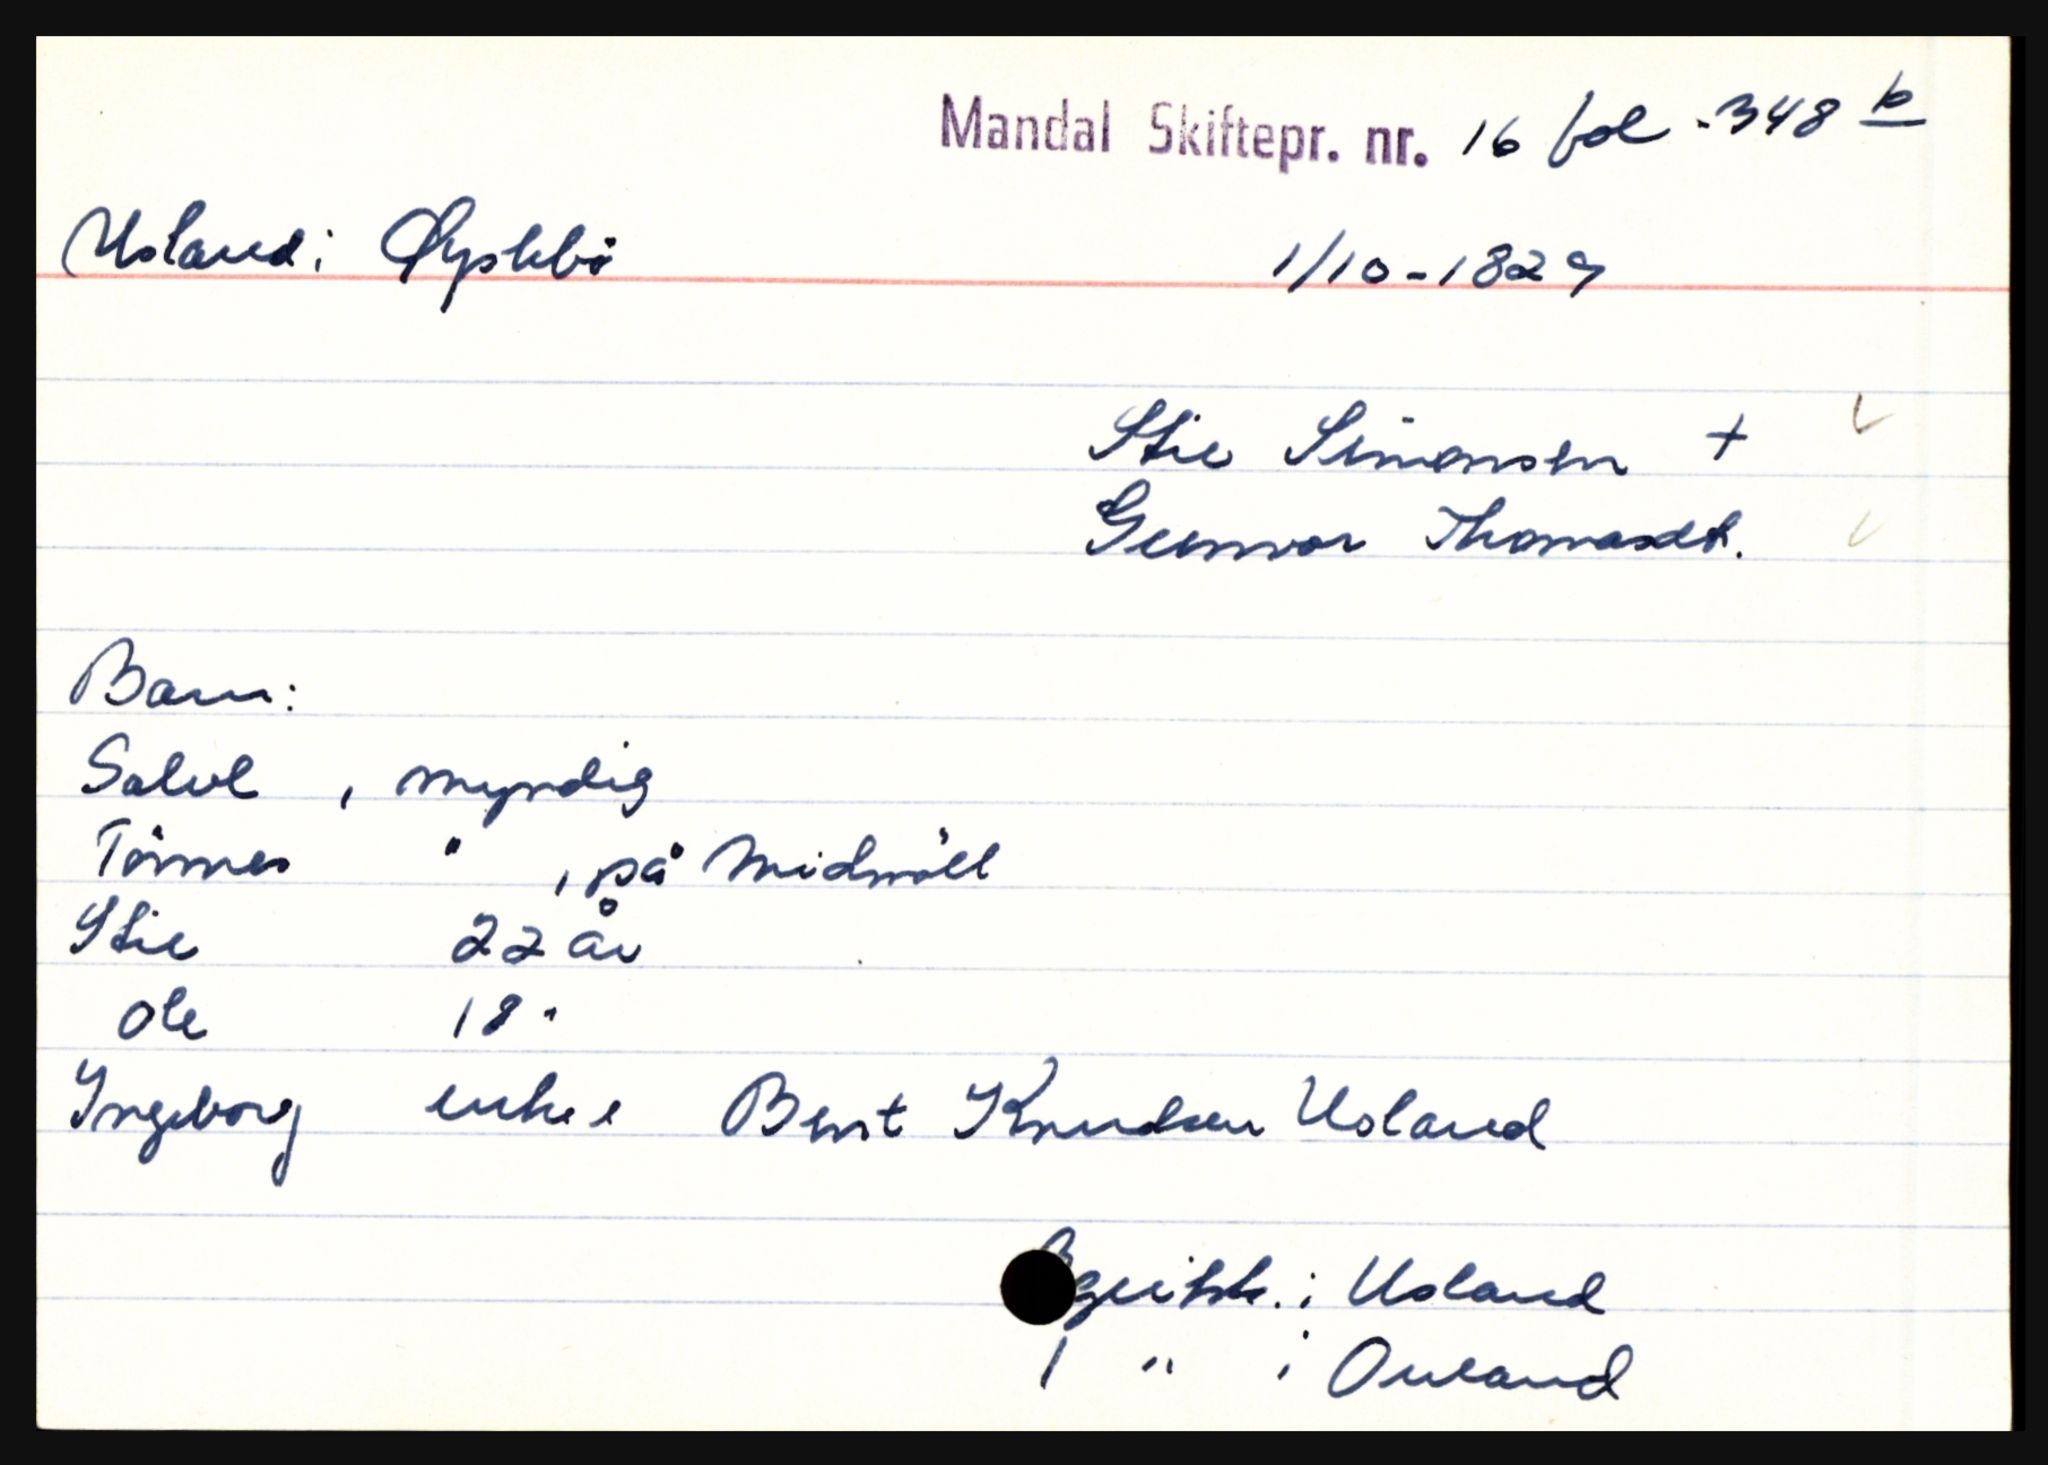 Mandal Skiftepr. nr. 16 fol - 348 b
Usland i Øyslebö 1/10-1829
Stie Simonsen +
Gunvor Thomasdt.
Barn:
Salvl , myndig
Tönnes " , på Midnöll
Stie 22 år
Ole 18 "
Ingeborg enke e Bent Knudsen Usland
i Usland
1 " i Ouland